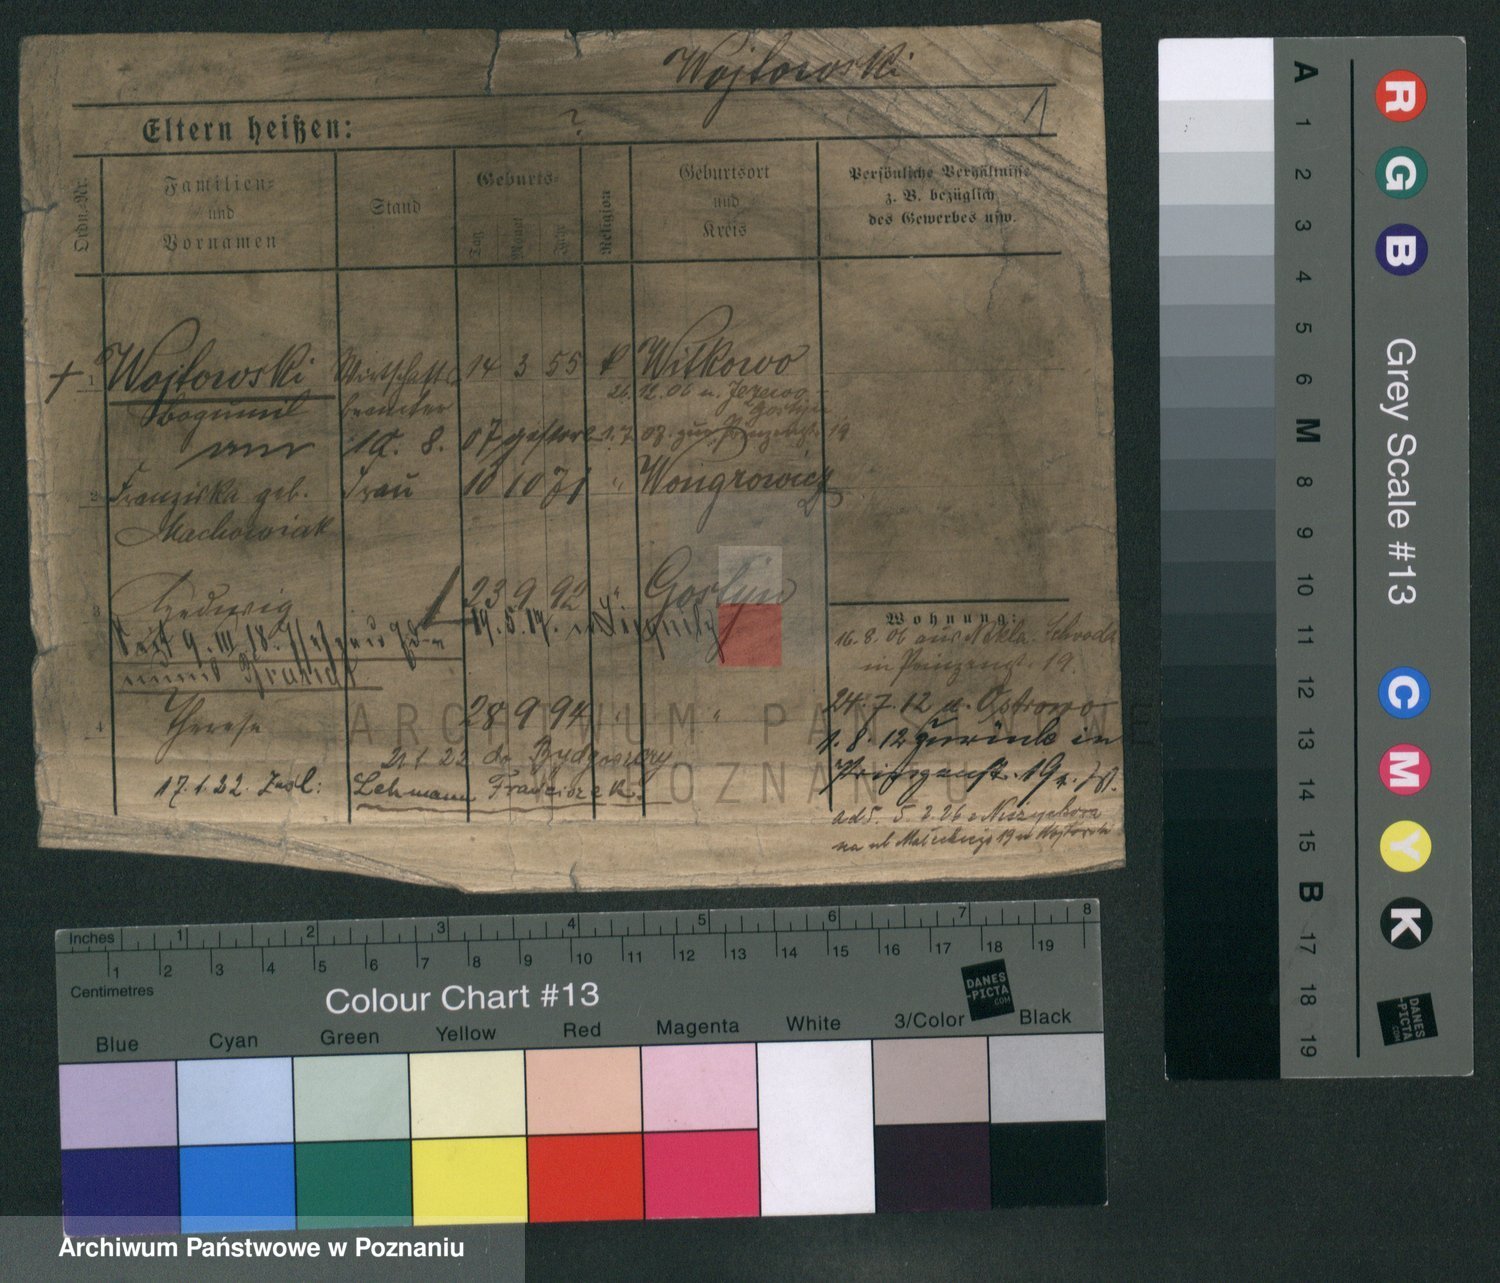 Wojtowski
Eltern heißen: ?
1
Ordn.-Nr.
Familien-
und
Vornamen
Stand
Geburts-
Tag
Monat
Jahr
Religion
Geburtsort
und
Kreis
Persönliche Verhältnisse
z. B. bezüglich
des Gewerbes usw.
+ 1 Wojtowski Wirtschafts- 14 3 55 k Witkowo
Bogumil beamter 26.12.06 n. Jezewo
Gostyn
am 10. 8. 07 gestorb. 1.7.08. zur. Prinzenst. 19
2 Franziska geb. Frau 10 10 71 " Wongrowiez
Machowiak
3 Hedwig 23 9 92 " Gostyn
19.5.17.
4 Therese 28 9 94 " "
21.1.22 do Bydgoszczy
17.1.22. Zasl: Lehmann Franciszek
Wohnung:
16.8.06 aus Nakla
in Prinzenst. 19.
24.7.12 n. Ostrowo
1.8.12 zurück in
Prinzenst. 19
5.2.26
na ul Małeckiego 19 w Wojtowski
ARCHIWUM PAŃSTWOWE
W POZNANIU
A 1 2 3 4 5 6 M 8 9 10 11 12 13 14 15 B 17 18 19
R G B
Grey Scale #13
C M Y K
DANES
-PICTA
.COM
Inches 1 2 3 4 5 6 7 8
1 2 3 4 5 6 7 8 9 10 11 12 13 14 15 16 17 18 19
Centimetres
Colour Chart #13
DANES
-PICTA
.COM
Blue Cyan Green Yellow Red Magenta White 3/Color Black
Archiwum Państwowe w Poznaniu